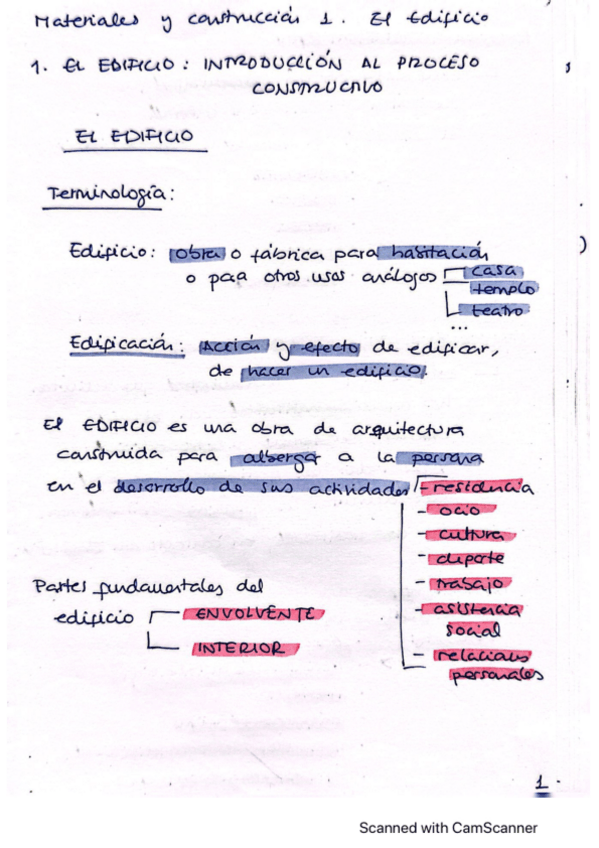 Materiales y construcción 1. El Edificio
1. EL EDIFICIO: INTRODUCCIÓN AL PROCESO
CONSTRUCTIVO
EL EDIFICIO
Terminología:
Edificio: obra o fábrica para habitación
o para otros usos análogos
casa
templo
teatro
...
Edificación: Acción y efecto de edificar,
de hacer un edificio.
El EDIFICIO es una obra de arquitectura
construida para albergar a la persona
en el desarrollo de sus actividades
- residencia
- ocio
- cultura
- deporte
- trabajo
- asistencia
social
- relaciones
personales
Partes fundamentales del
edificio
- ENVOLVENTE
- INTERIOR
1.
Scanned with CamScanner